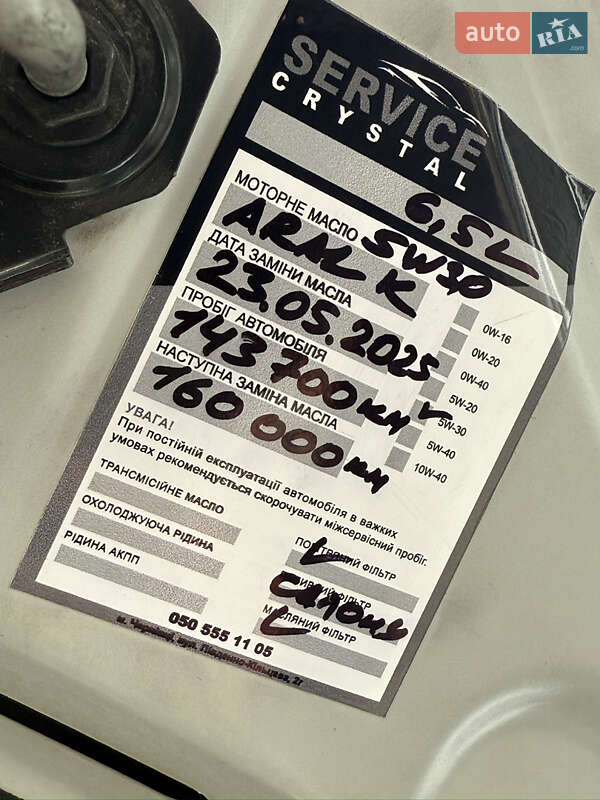 auto RIA .com
SERVICE
CRYSTAL
6,5L
МОТОРНЕ МАСЛО 5W30
ARAL K
ДАТА ЗАМІНИ МАСЛА
23.05.2025
ПРОБІГ АВТОМОБІЛЯ
143 700 км
НАСТУПНА ЗАМІНА МАСЛА
160 000 км
0W-16
0W-20
0W-40
5W-20
✓ 5W-30
5W-40
10W-40
УВАГА!
При постійній експлуатації автомобіля в важких
умовах рекомендується скорочувати міжсервісний пробіг.
ТРАНСМІСІЙНЕ МАСЛО
ОХОЛОДЖУЮЧА РІДИНА
РІДИНА АКПП
ПОВІТРЯНИЙ ФІЛЬТР
ФІЛЬТР
МАСЛЯНИЙ ФІЛЬТР
050 555 11 05
м. Чернівці, вул. Південно-Кільцева, 2г